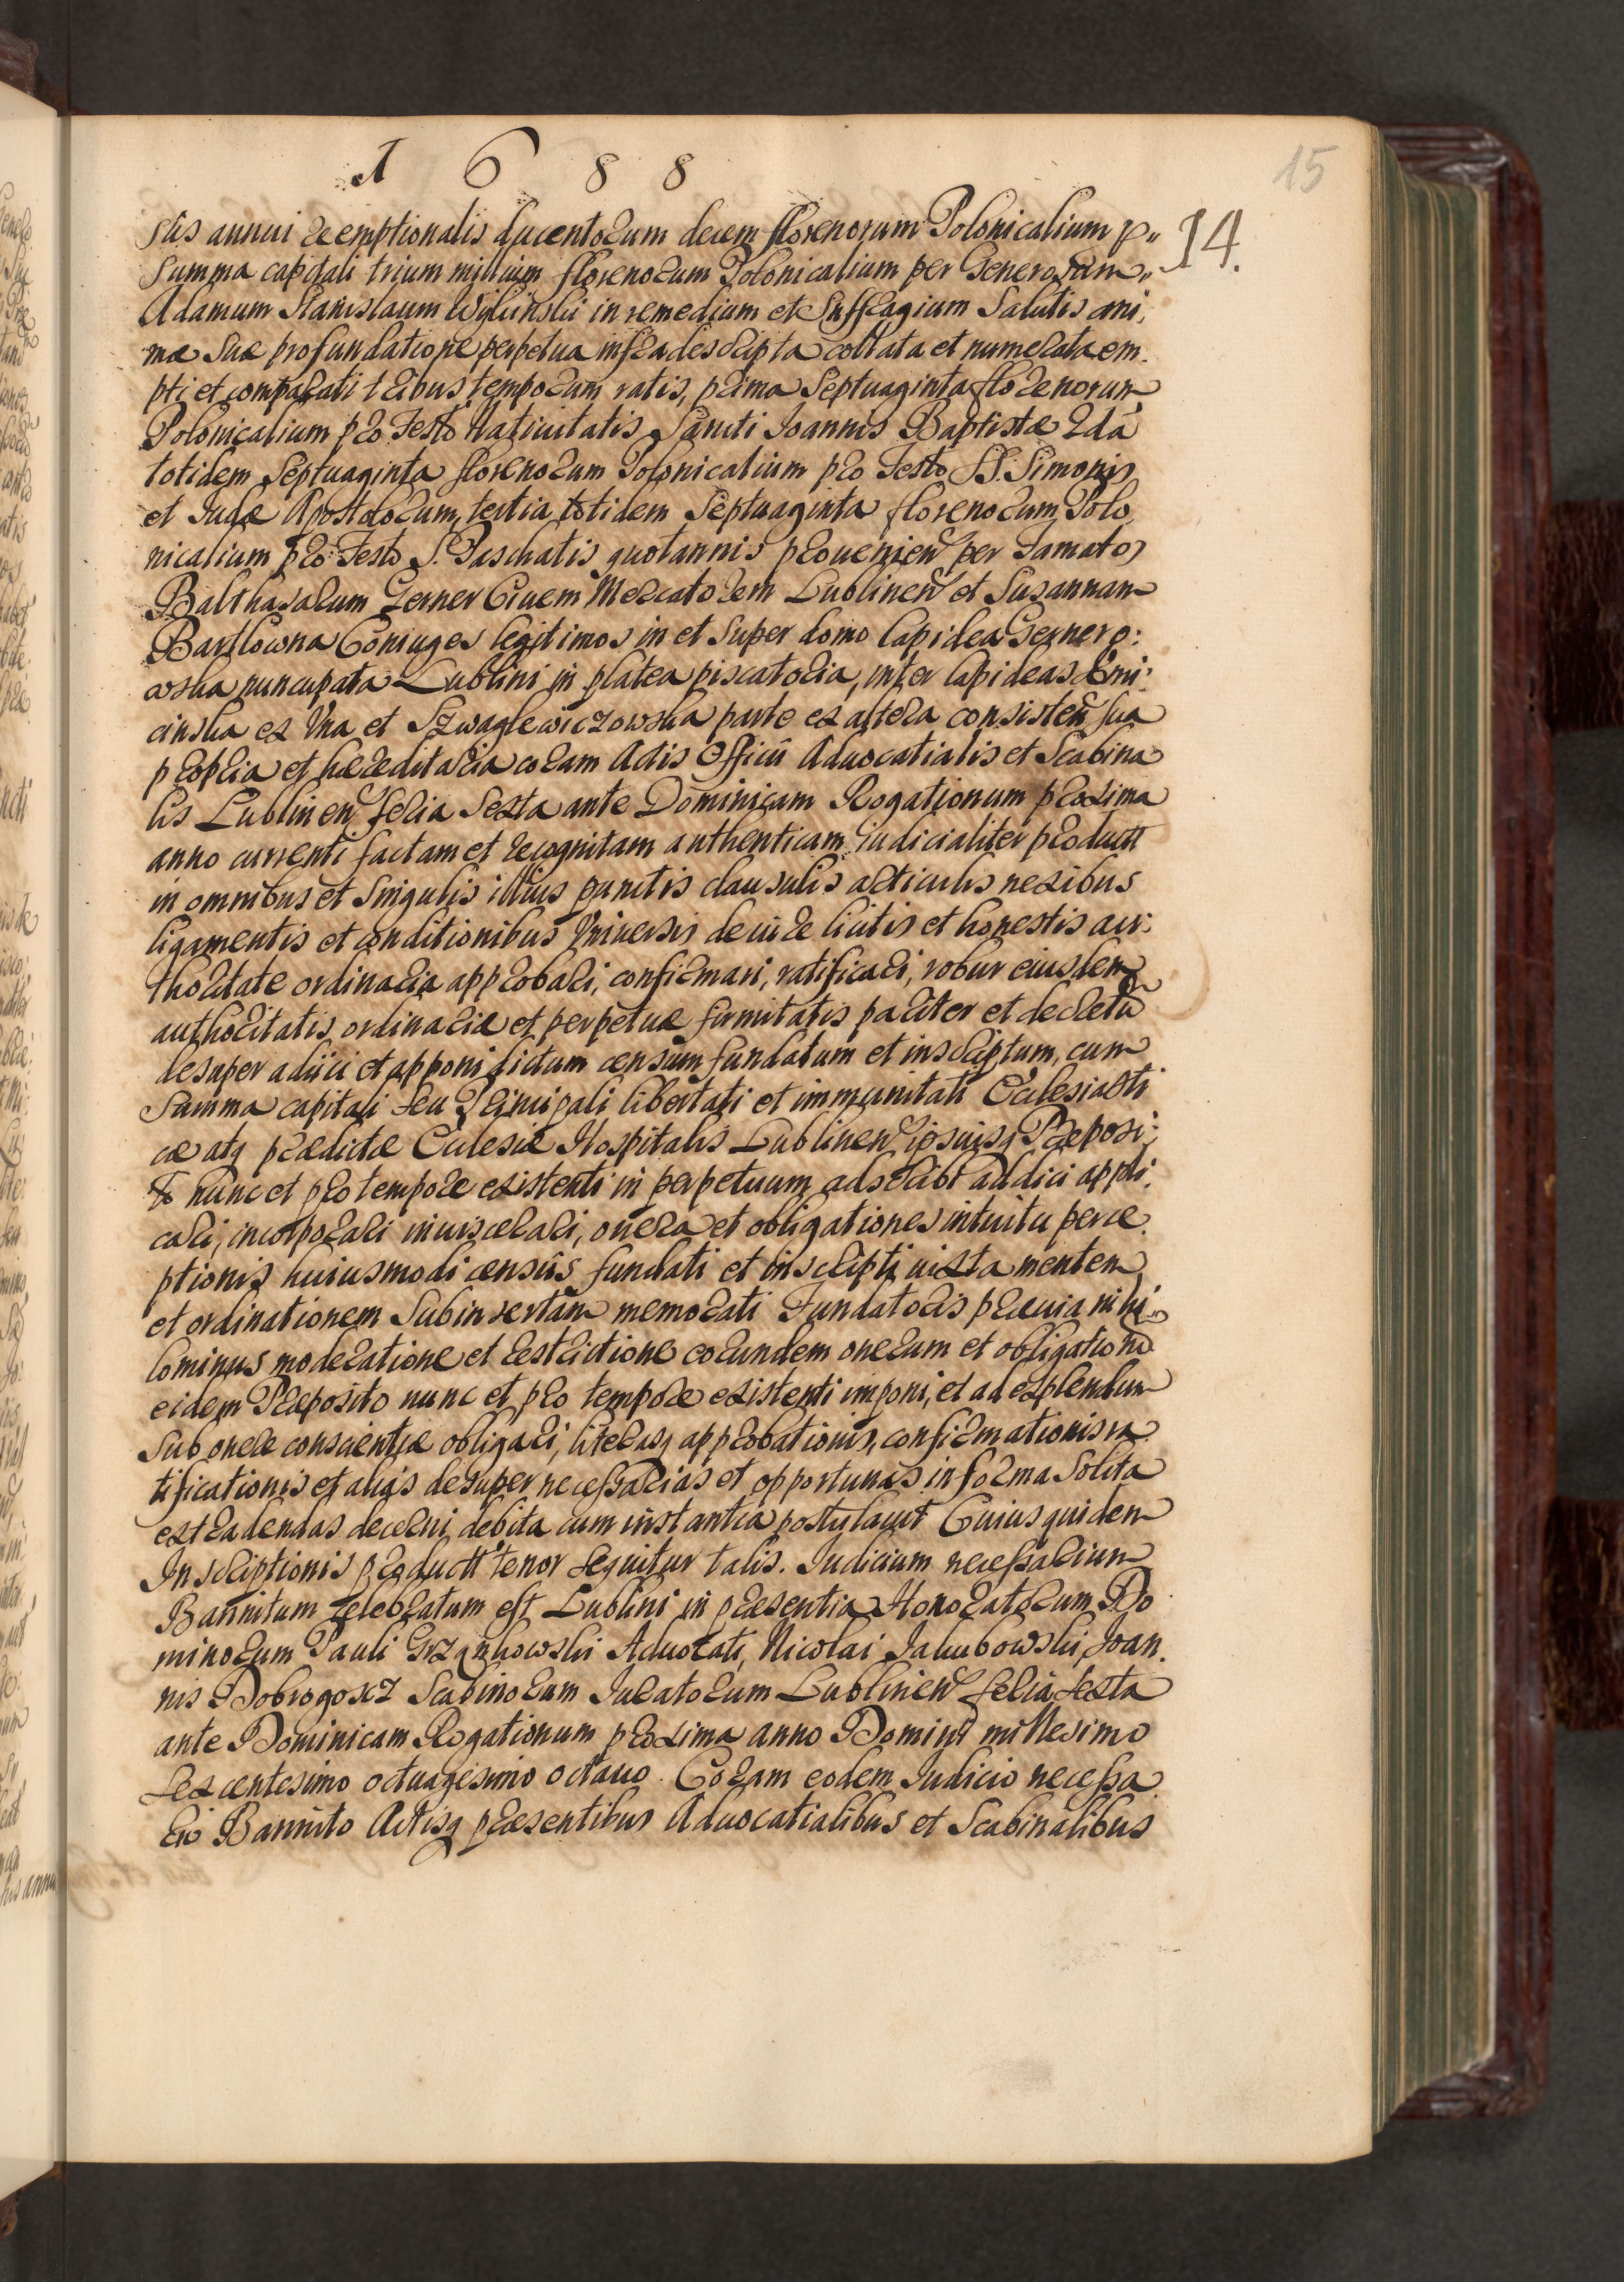 1688
15
sûs annui reemptionalis ducentorum decem florenorum Polonicalium p„
14.
Summa capitali trium millium florenorum Polonicalium per Generosum„
Adamum Stanislaum Wiglinski in remedium et Suffragium Salutis ani,
mæ Suæ pro fundatione perpetua infradescripta collata et numerata em.
pti et comparati tribus temporum ratis, prima Septuaginta florenorum
Polonicalium pro Festo Natiuitatis Sancti Ioannis Baptistæ 2dâ
totidem Septuaginta florenorum Polonicalium pro Festo SS. Simonis
et Iudæ Apostolorum, tertia totidem Septuaginta florenorum Polo
nicalium pro Festo S. Paschatis quotannis prouenien per Famatos
Balthasarum Gerner Ciuem Mercatorem Lublinen et Susannam
Bartlowna Coniuges legitimos in et Super domo lapidea Gernero:
wska nuncupata Lublini in platea piscatoria, inter lapideas
cinska ex Vna et Szwaglewiczowska parte ex altera consisten sua
propria et hæreditaria coram Actis Officii Aduocatialis et Scabina
lis Lublinen feria Sexta ante Dominicam Rogationum proxima
anno currenti factam et recognitam authenticam iudicialiter product
in omnibus et Singulis illius punctis clausulis articulis nexibus
ligamentis et conditionibus Vniuersis de iure licitis et honestis au:
thoritate ordinaria approbari, confirmari, ratificari, robur eiusdem
authoritatis ordinariæ et perpetuæ firmitatis pariter et decretû
desuper adiici et apponi dictum censum fundatum et inscriptum, cum
Summa capitali seu Principali libertati et immunitati Ecclesiasti
cæ atq prædictæ Ecclesiæ Hospitalis Lublinen ipsiusq Præposi;
to nunc et pro tempore existenti in perpetuum adscribi addici appli,
cari, incorporari inuiscerari, onera et obligationes intuitu perce
ptionis huiusmodi censûs fundati et inscripti iuxta mentem
et ordinationem Subinsertam memorati Fundatoris præuia nihi
lominus moderatione et restrictione eorundem onerum et obligationû
eidem Præposito nunc et pro tempore existenti imponi, et ad explendum
Sub onere conscientiæ obligari, literasq approbationis, confirmationis ra
tificationis et aliâs desuper necessarias et opportunas in forma Solita
extradendas decerni debita cum instantia postulauit Cuius quidem
Inscriptionis product tenor sequitur talis. Iudicium necessarium
Bannitum celebratum est Lublini in præsentia Honoratorum Do
minorum Pauli Grzankowski Aduocati, Nicolai Iakubowski, Ioan.
nis Dobrogoscz Scabinorum Iuratorum Lublinen feria sexta
ante Dominicam Rogationum proxima anno Domini millesimo
sexcentesimo octuagesimo octauo. Coram eodem Iudicio necessa
rio Bannito Actisq præsentibus Aduocatialibus et Scabinalibus